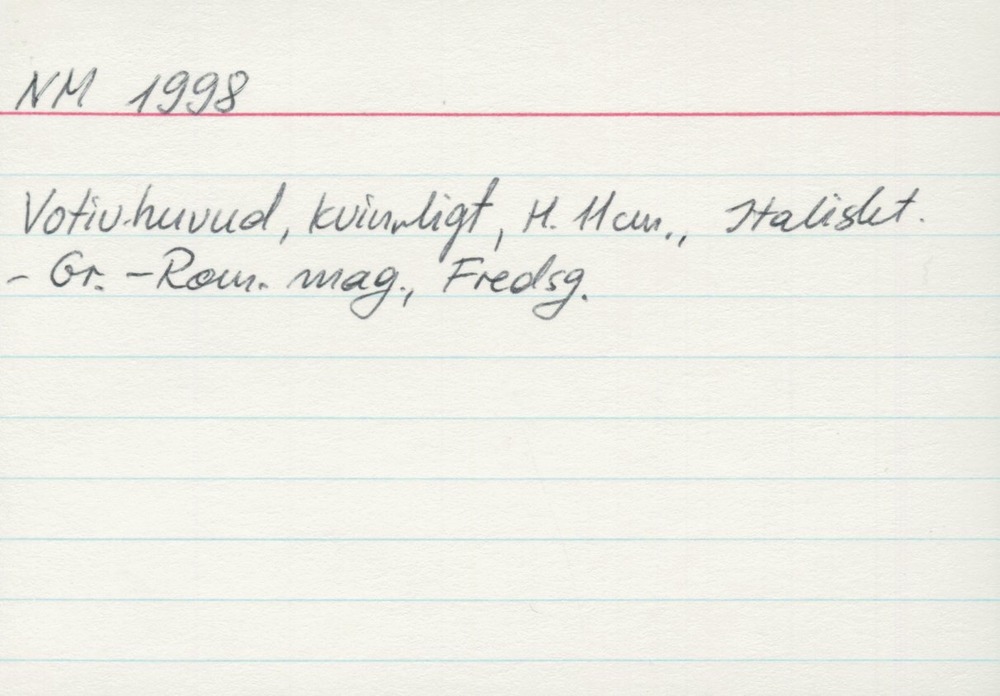 NM 1998
Votivhuvud, kvinnligt, H. 11 cm., Italiskt.
- Gr. - Rom. mag., Fredsg.